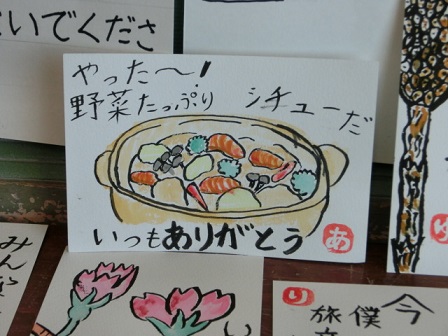 いでくださ
やった〜!
野菜たっぷり シチューだ
いつもありがとう
あ
みん
り
今
僕
旅
ゆ
い